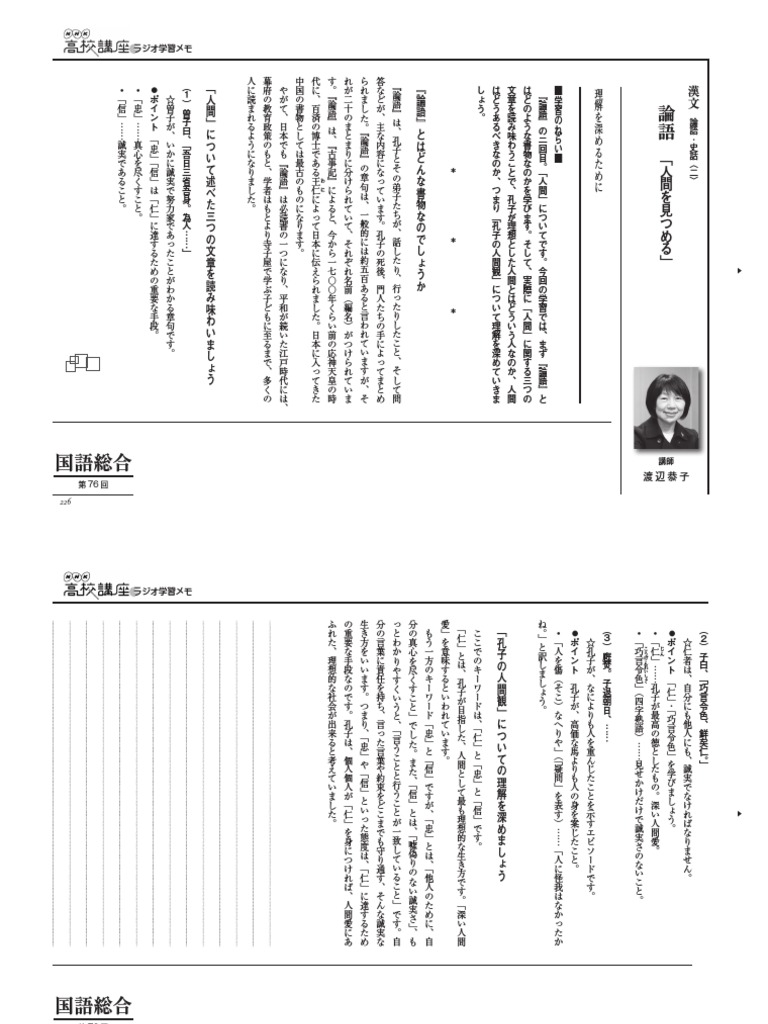 NHK
高校講座 ラジオ学習メモ
漢文　論語・史話（二）
論語　「人間を見つめる」
講師
渡辺恭子
理解を深めるために
■学習のねらい■
『論語』の二回目、「人間」についてです。今回の学習では、まず『論語』と
はどのような書物なのかを学びます。そして、実際に「人間」に関する三つの
文章を読み味わうことで、孔子が理想とした人間とはどういう人なのか、人間
はどうあるべきなのか、つまり「孔子の人間観」について理解を深めていきま
しょう。
＊　＊　＊
『論語』とはどんな書物なのでしょうか
『論語』は、孔子とその弟子たちが、話したり、行ったりしたこと、そして問
答などが、主な内容になっています。孔子の死後、門人たちの手によってまとめ
られました。『論語』の章句は、一般的には約五百あると言われていますが、そ
れが二十のまとまりに分けられていて、それぞれ名前（編名）がつけられていま
す。『論語』は、『古事記』によると、今から一七〇〇年くらい前の応神天皇の時
代に、百済の博士である王仁によって日本に伝えられました。日本に入ってきた
中国の書物としては最古のものになります。
やがて、日本でも『論語』は必読書の一つになり、平和が続いた江戸時代には、
幕府の教育政策のもと、学者はもとより寺子屋で学ぶ子どもに至るまで、多くの
人に読まれるようになりました。
「人間」について述べた三つの文章を読み味わいましょう
（1）曽子曰、「吾日三省吾身。為人……」
☆曽子が、いかに誠実で努力家であったことがわかる章句です。
●ポイント　「忠」「信」は「仁」に達するための重要な手段。
・「忠」……真心を尽くすこと。
・「信」……誠実であること。
国語総合
第76回
226
NHK
高校講座 ラジオ学習メモ
（2）子曰、「巧言令色、鮮矣仁。」
☆仁者は、自分にも他人にも、誠実でなければなりません。
●ポイント　「仁」・「巧言令色」を学びましょう。
・「仁」……孔子が最高の徳としたもの。深い人間愛。
・「巧言令色」（四字熟語）……見せかけだけで誠実さのないこと。
（3）廄焚。子退朝曰、……
☆孔子が、なによりも人を重んじたことを示すエピソードです。
●ポイント　孔子が、高価な馬よりも人の身を案じたこと。
・「人を傷（そこ）なへりや」（「疑問」を表す）……「人に怪我はなかったか
ね。」と訳しましょう。
「孔子の人間観」についての理解を深めましょう
ここでのキーワードは、「仁」と「忠」と「信」です。
「仁」とは、孔子が目指した、人間として最も理想的な生き方です。「深い人間
愛」を意味するといわれています。
もう一方のキーワード「忠」と「信」ですが、「忠」とは、「他人のために、自
分の真心を尽くすこと」でした。また、「信」とは、「嘘偽りのない誠実さ」、も
っとわかりやすくいうと、「言うことと行うことが一致していること」です。自
分の言葉に責任を持ち、言った言葉や約束をどこまでも守り通す、そんな誠実な
生き方をいいます。つまり、「忠」や「信」といった態度は、「仁」に達するため
の重要な手段なのです。孔子は、個人個人が「仁」を身につければ、人間愛にあ
ふれた、理想的な社会が出来ると考えていました。
国語総合